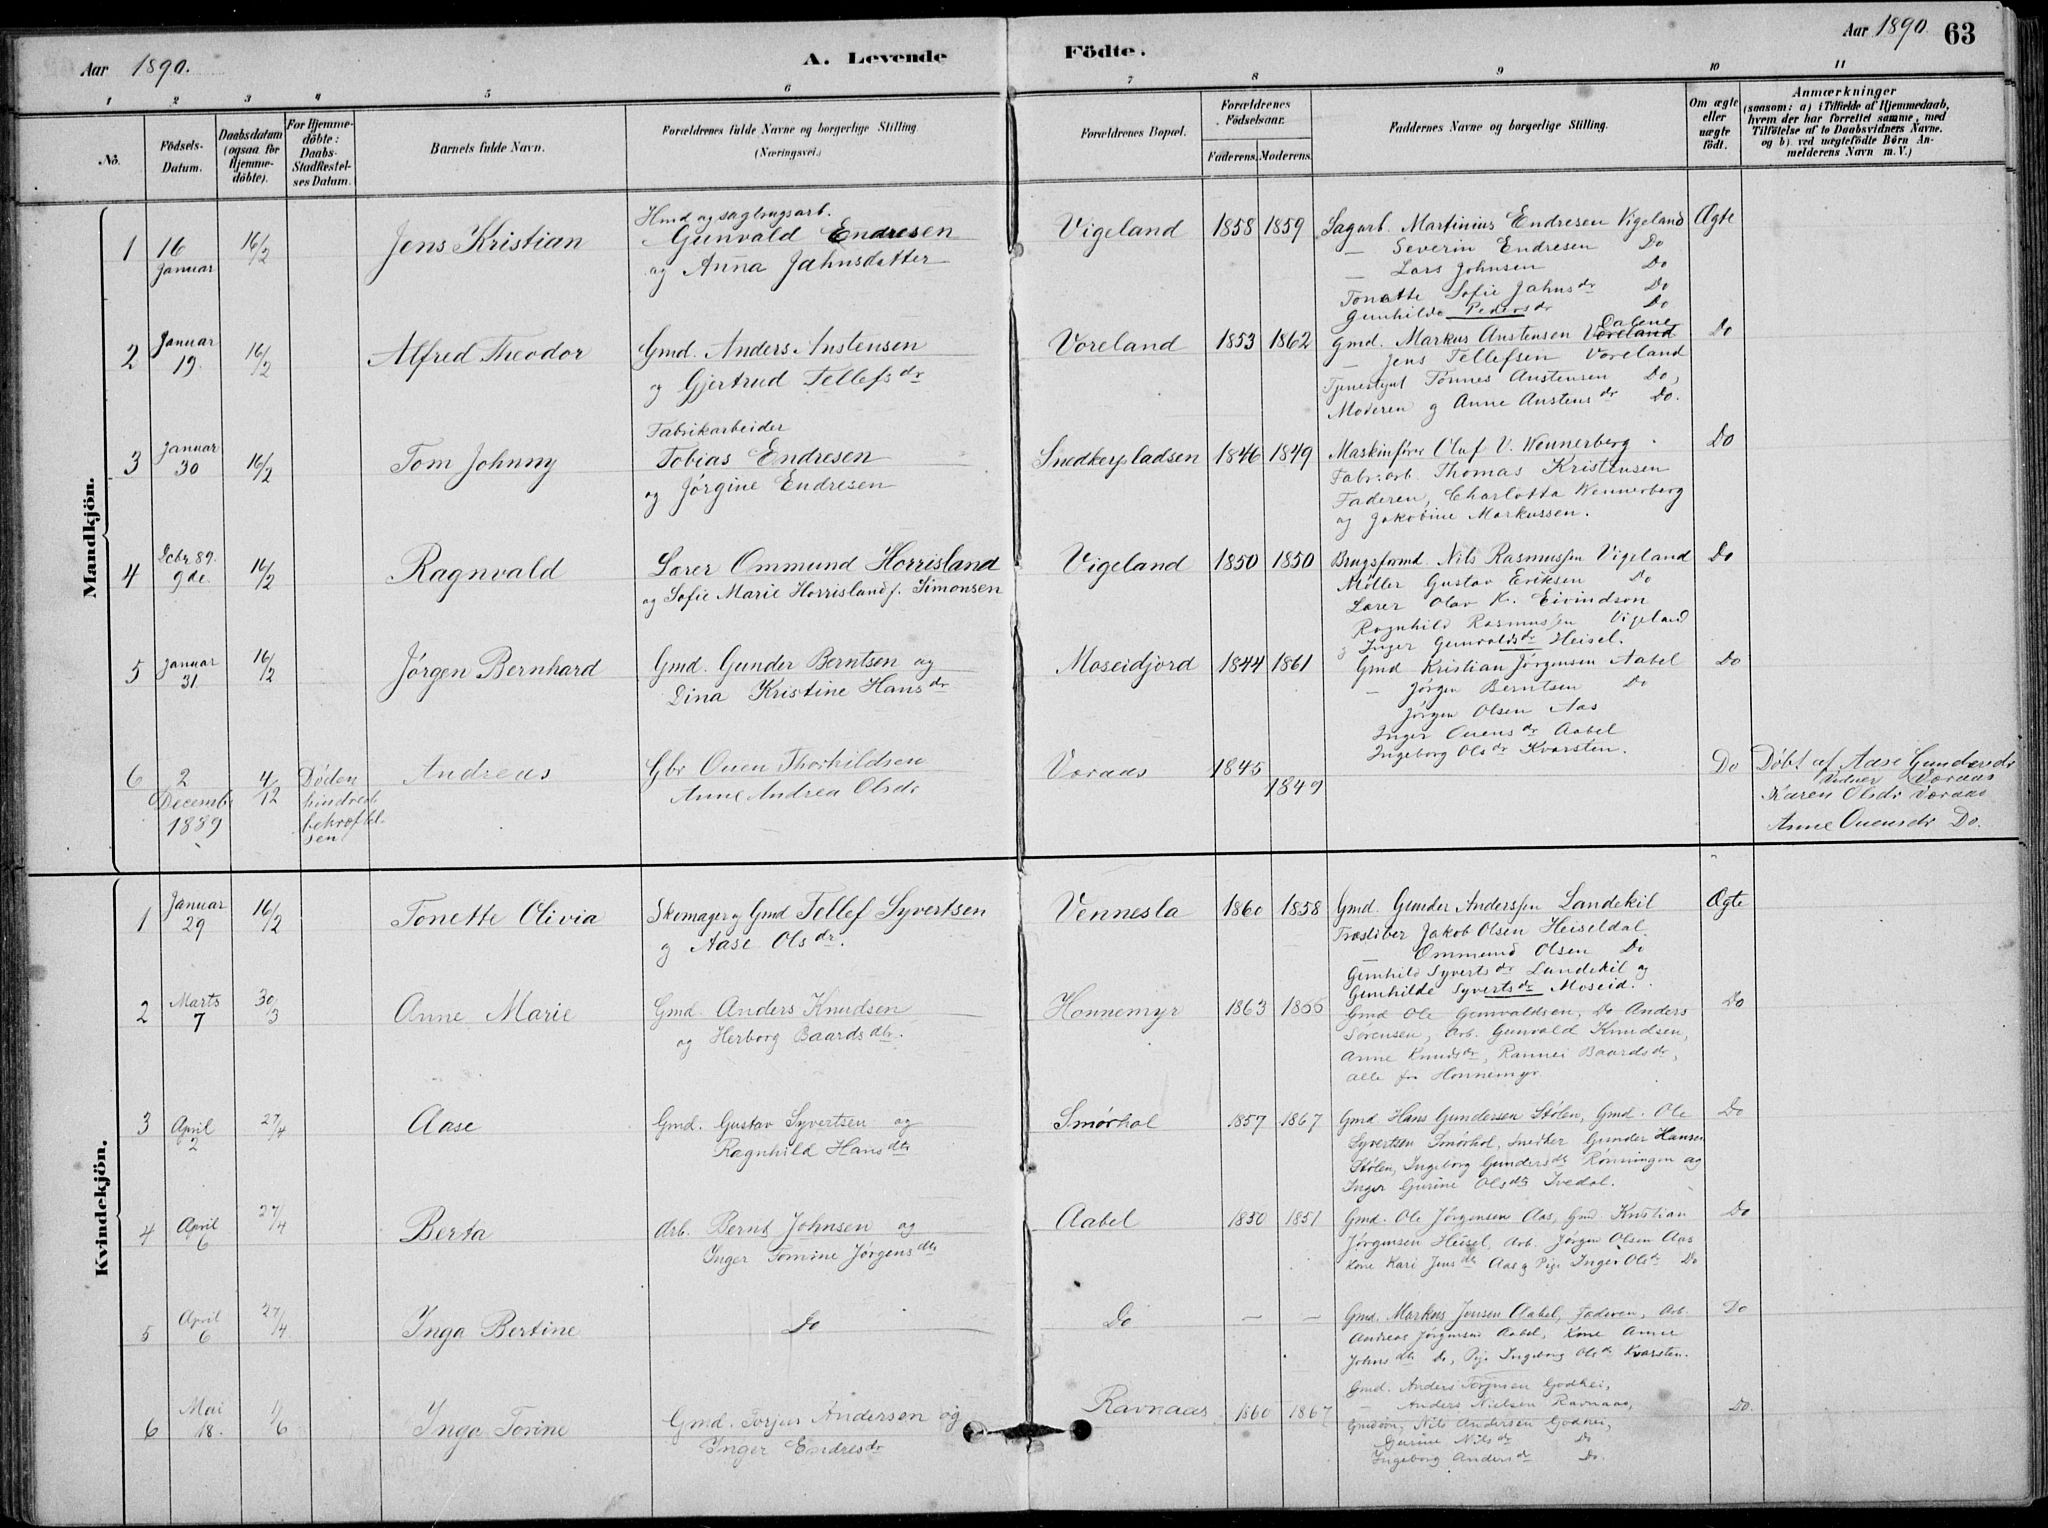 Aar 1890.
A. Levende Födte.
Aar 1890 63
1 2 3 4 5 6 7 8 9 10 11
No.
Födsels-Datum.
Daabsdatum (ogsaa for Hjemme-döbte).
For Hjemme-döbte: Daabs-Stadfæstel-ses Datum.
Barnets fulde Navn.
Forældrenes fulde Navne og borgerlige Stilling (Næringsvei.)
Forældrenes Bopæl.
Forældrenes Födselsaar.
Faderens. Moderens.
Faddernes Navne og borgerlige Stilling.
Om ægte eller uægte födt.
Anmærkninger
(saasom: a) i Tilfælde af Hjemmedaab, hvem der har forrettet samme, med Tilföielse af to Daabsvidners Navne. og b) ved uægtefödte Børn An-melderens Navn m. V.)
Mandkjön.
1 16 Januar 16/2 Jens Kristian
Hmd og sagbrugsarb.
Gunvald Endresen
og Anna Jahnsdatter
Vigeland 1858 1859
Sagarb. Martinius Endresen Vigeland Ægte
— Severin Endresen Do
— Lars Johnsen Do
Tonette Sofie Jahnsdr Do
Gunhilde Pedersdr Do
2 Januar 19. 16/2 Alfred Theodor
Gmd. Anders Austensen
og Gjertrud Tellefsdr
Voreland 1853 1862
Gmd. Markus Austensen Voreland Dalene Do
— Jens Tellefsen Voreland
Tjenestgut Tønnes Austensen Do,
Moderen g Anne Austensdr Do.
3 Januar 30 16/2 Tom Johnny
Fabrikarbeider
Tobias Endresen
og Jørgine Endresen
Snedkerpladsen 1846 1849
Maskinfører Oluf V. Wennerberg. Do
Fabr:arb. Thomas Kristensen
Faderen, Charlotta Wennerberg
og Jakobine Markussen.
4 Decbr 89. 9de 16/2 Ragnvald
Lærer Ommund Horrisland
og Sofie Marie Horrisland f. Simonsen
Vigeland 1850 1850
Brugsformd. Nils Rasmussen Vigeland Do
Møller Gustav Eriksen Do
Lærer Olav K. Eivindson
Ragnhild Rasmussen Vigeland
g Inger Gunvaldsdr Heisel.
5 Januar 31. 16/2 Jørgen Bernhard
Gmd. Gunder Berntsen og
Dina Kristine Hansdr
Moseidjord 1844 1861
Gmd Kristian Jørgensen Aabel Do
— Jørgen Berntsen Do
Jørgen Olsen Aas
Inger Ouensdr Aabel
Ingeborg Olsdr Kvarsten.
6 2 Decembr 1889 4/12 Døden hindrede bekræftel-sen!
Andreas
Gbr Ouen Thorkildsen
Anne Andrea Olsdr
Voraas 1845 1849 Do
Døbt af Aase Gundersdr
Vidner Voraas
Karen Olsdr Voraas
Anne Ouensdr Do.
Kvindekjön.
1 Januar 29 16/2 Tonette Olivia
Skomager g Gmd Tellef Syvertsen
g Aase Olsdr.
Vennesla 1860 1858
Gmd. Gunder Anderssen Landekil Ægte
Træsliber Jakob Olsen Heiseldal.
— Ommund Olsen Do
Gunhild Syvertsdr Lundekil og
Gunhilde Syvertsdr Moseid.
2 Marts 7 30/3 Anne Marie
Gmd. Anders Knudsen
og Herborg Baardsdtr.
Honnemyr 1863 1866
Gmd Ole Gunvaldsen, Do Anders Do
Sørensen, Arb. Gunvald Knudsen,
Anne Knudsdr, Rannei Baardsdr,
alle fra Honnemyr.
3 April 2 27/4 Aase
Gmd. Gustav Syvertsen og
Ragnhild Hansdtr
Smørhol 1857 1867
Gmd Hans Gundersen Stølen, Gmd. Ole Do
Syvertsen Smørhol, Snedker Gunder Hansen
Stølen, Ingeborg Gundersdr Rønningen og
Inger Gurine Olsdtr Ivedal.
4 April 6 27/4 Berta
Arb. Bernt Johnsen og
Inger Tomine Jørgensdtr
Aabel 1850 1851
Gmd. Ole Jørgensen Aas, Gmd. Kristian Do
Jørgensen Heisel, Arb. Jørgen Olsen Aas
Kone Kari Jensdtr Aas g Pige Inger Olsdr Do
5 April 6 27/4 Inga Bertine
Do
Do — —
Gmd. Markus Jensen Aabel, Faderen, Arb. Do
Andreas Jørgensen Aabel, Kone Anne
Johnsdtr Do, Pige Ingeborg Olsdr Kvarsten.
6 Mai 18. 1/6 Inga Torine
Gmd. Torjus Andersen og
Inger Endresdr
Ravnaas 1860 1867
Gmd. Anders Torjusen Godhei,
— Anders Nielsen Ravnaas, Do.
Gmdsøn, Nils Andersen Godhei,
Gurine Nilsdr Do
Ingeborg Andersdr Do.